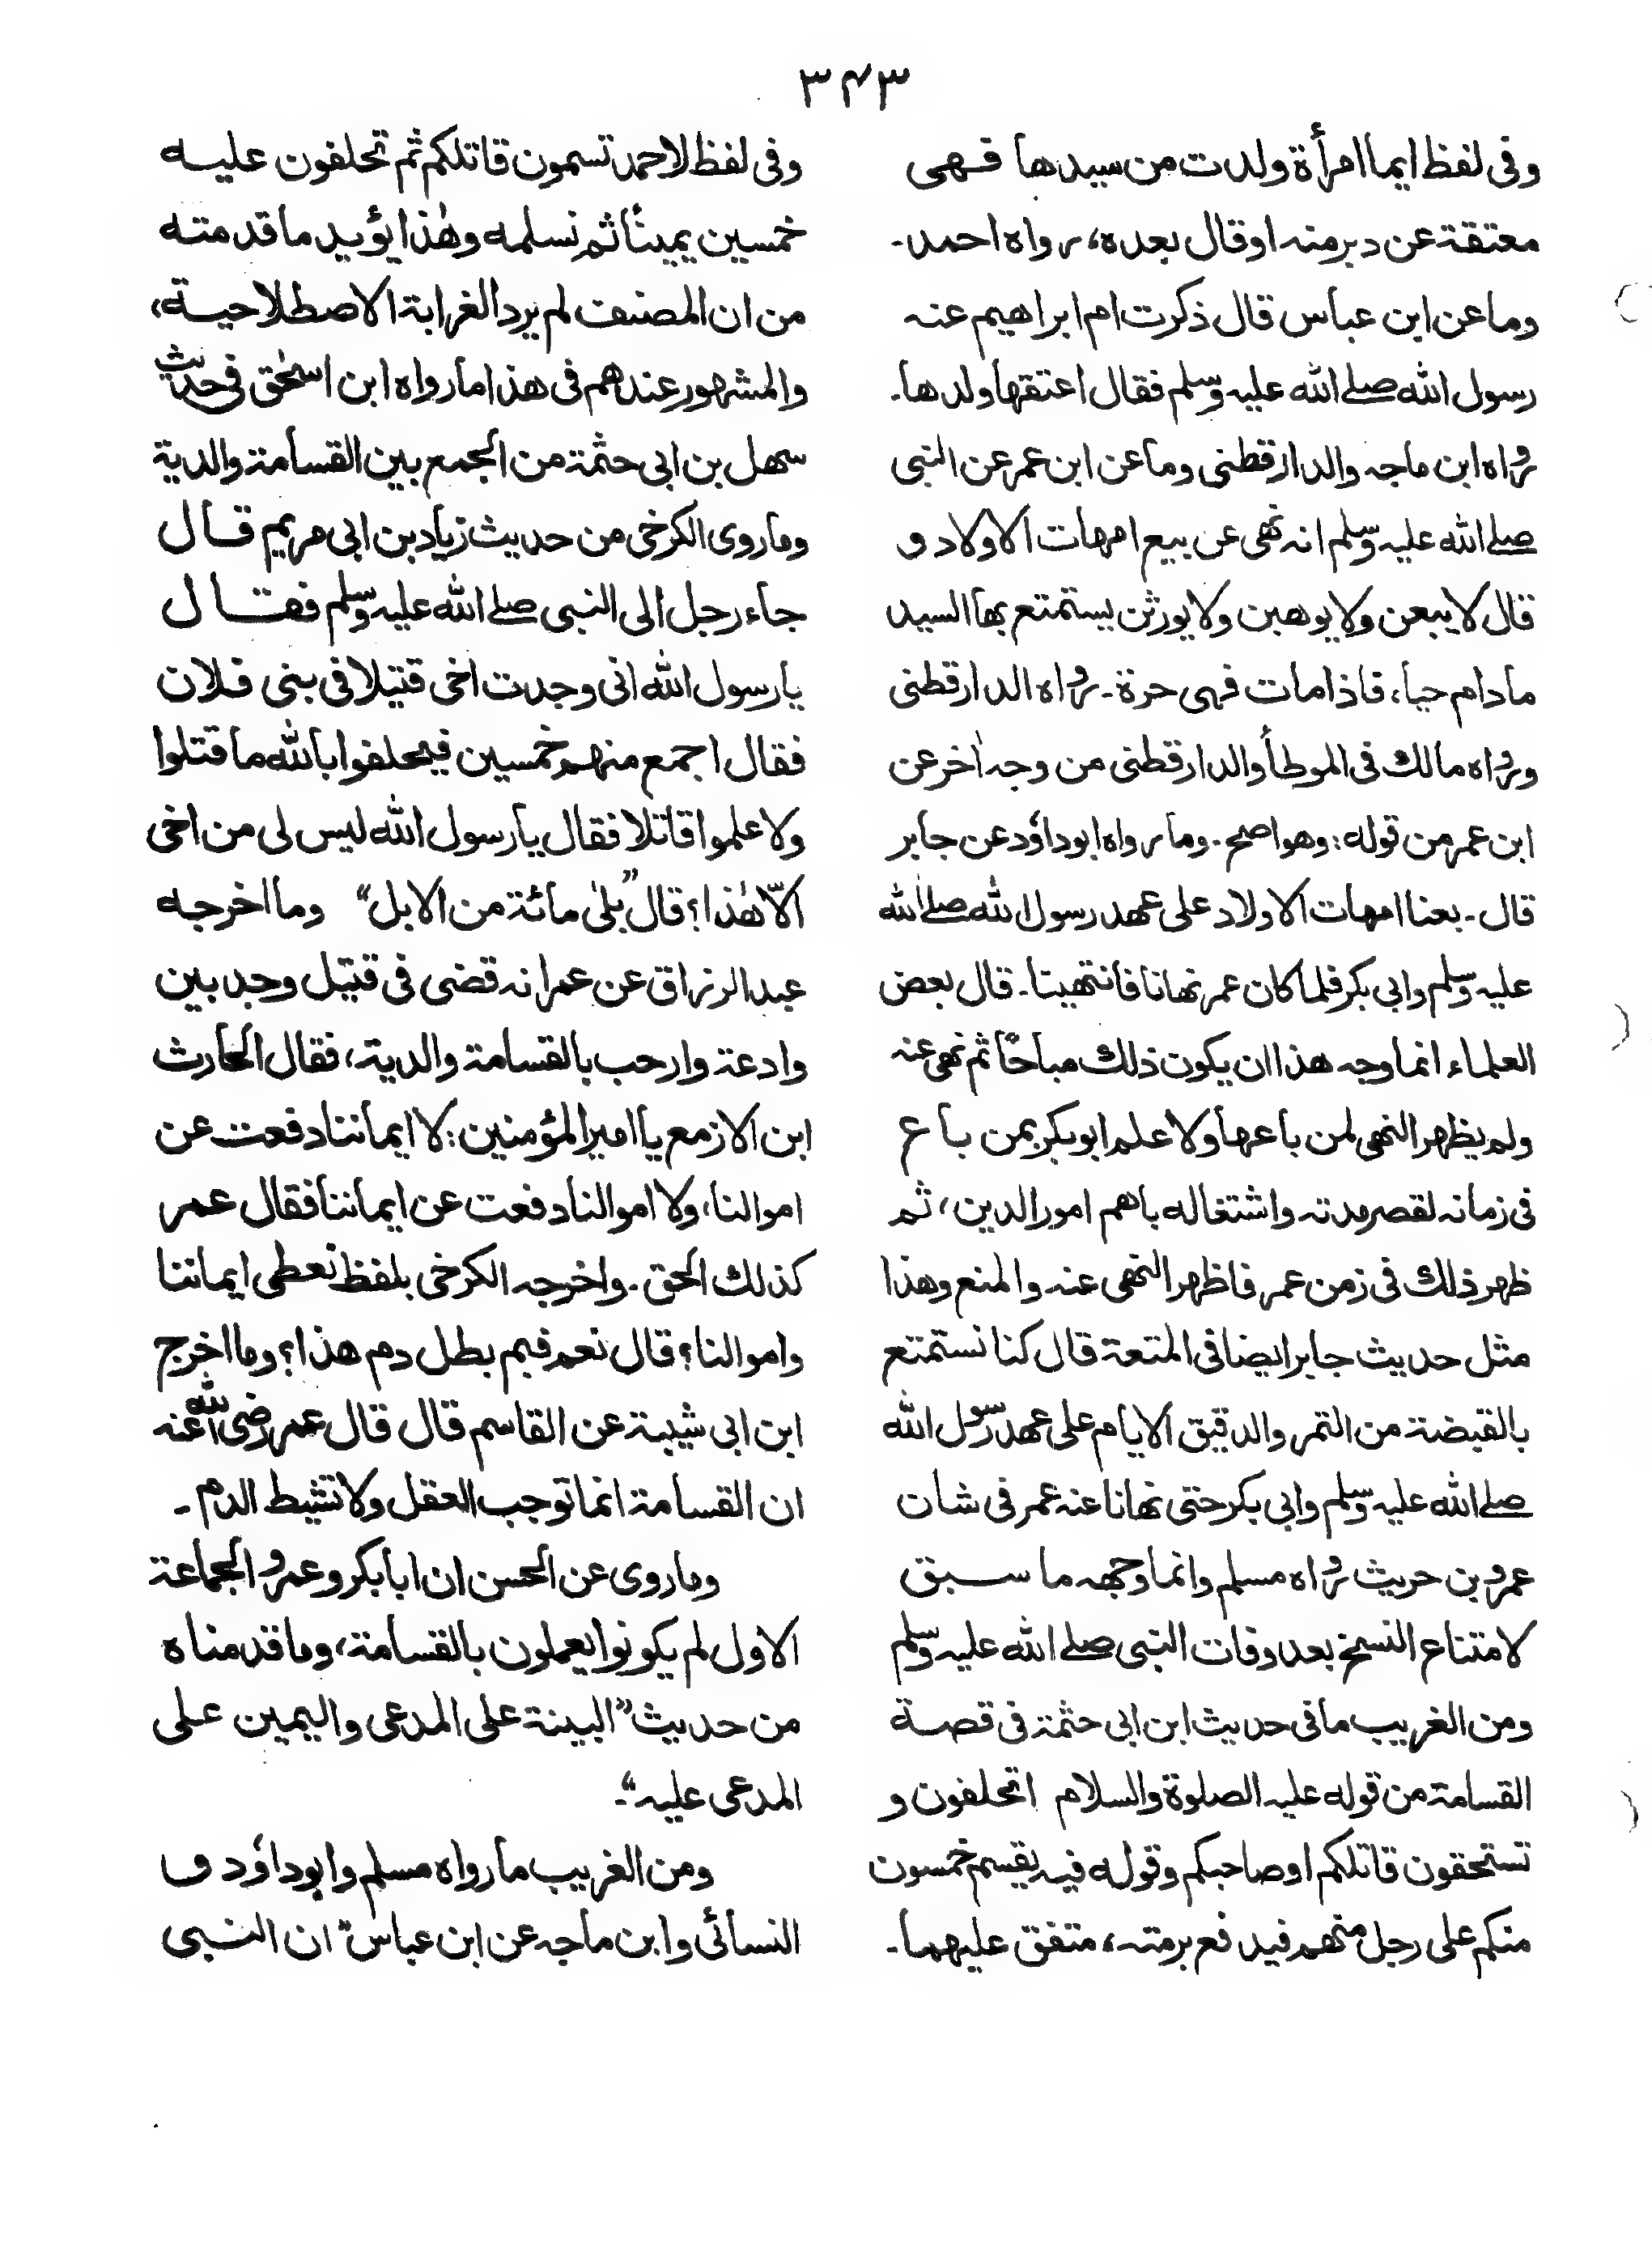 ۳۴۳
وفی لفظ ایما امرأة ولدت من سیدها فهی
معتقة عن دبر منه او قال بعده، رواه احمد۔
وما عن ابن عباس قال ذکرت ام ابراهیم عنه
رسول الله صلے الله علیه وسلم فقال اعتقها ولدها۔
رواه ابن ماجه والدارقطنی وما عن ابن عمر عن النبی
صلے الله علیه وسلم انه نهی عن بیع امهات الاولاد و
قال لا یبعن ولا یوهبن ولا یورثن یستمتع بها السید
مادام حیا، فاذا مات فهی حرة۔ رواه الدارقطنی
ورواه مالك فی الموطأ والدارقطنی من وجه اٰخر عن
ابن عمر من قوله: وهو اصح۔ وما رواه ابو داؤد عن جابر
قال۔ بعنا امهات الاولاد علی عهد رسول الله صلے الله
علیه وسلم وابی بکر فلما کان عمر نهانا فانتهینا۔ قال بعض
العلماء انما وجه هذا ان یکون ذلك مباحًا ثم نهی عنه
ولم یظهر النهی لمن باعها ولا علم ابوبکر بمن باع
فی زمانه لقصر مدته واشتغاله باهم امور الدین، ثم
ظهر ذلك فی زمن عمر فاظهر النهی عنه والمنع وهذا
مثل حدیث جابر ایضا فی المتعة قال کنا نستمتع
بالقبضة من التمر والدقیق الایام علی عهد رسول الله
صلے الله علیه وسلم وابی بکر حتی نهانا عنه عمر فی شان
عمرو بن حریث رواه مسلم وانما وجهه ما سبق
لامتناع النسخ بعد وفات النبی صلے الله علیه وسلم
ومن الغریب ما فی حدیث ابن ابی حثمة فی قصة
القسامة من قوله علیه الصلوة والسلام اتحلفون و
تستحقون قاتلکم او صاحبکم وقوله فیه یقسم خمسون
منکم علی رجل منهم فیدفع برمته، متفق علیهما۔
وفی لفظ لاحمد تسمون قاتلکم ثم تحلفون علیه
خمسین یمینًا ثم نسلمه وهٰذا یؤید ما قدمته
من ان المصنف لم یرد الغرابة الاصطلاحیة،
والمشهور عندهم فی هذا ما رواه ابن اسحٰق فی حدیث
سهل بن ابی حثمة من الجمع بین القسامة والدیة
وما روی الکرخی من حدیث زیاد بن ابی مریم قال
جاء رجل الی النبی صلے الله علیه وسلم فقال
یا رسول الله انی وجدت اخی قتیلا فی بنی فلان
فقال اجمع منهم خمسین فیحلفوا بالله ما قتلوا
ولا علموا قاتلا فقال یا رسول الله لیس لی من اخی
الّا هٰذا؟ قال "بلیٰ مائة من الابل" وما اخرجه
عبد الرزاق عن عمر انه قضی فی قتیل وجد بین
وادعة وارحب بالقسامة والدیة، فقال الحارث
ابن الازمع یا امیر المؤمنین: لا ایماننا دفعت عن
اموالنا، ولا اموالنا دفعت عن ایماننا فقال عمر
کذلك الحق۔ واخرجه الکرخی بلفظ نعطی ایماننا
واموالنا؟ قال نعم فبم بطل دم هذا؟ وما اخرج
ابن ابی شیبة عن القاسم قال قال عمر رضی الله عنه
ان القسامة انما توجب العقل ولا تشیط الدم۔
وما روی عن الحسن ان ابا بکر وعمر والجماعة
الاول لم یکونوا یعملون بالقسامة، وما قدمناه
من حدیث "البینة علی المدعی والیمین علی
المدعی علیه"۔
ومن الغریب ما رواه مسلم وابو داؤد و
النسائی وابن ماجه عن ابن عباس" ان النبی